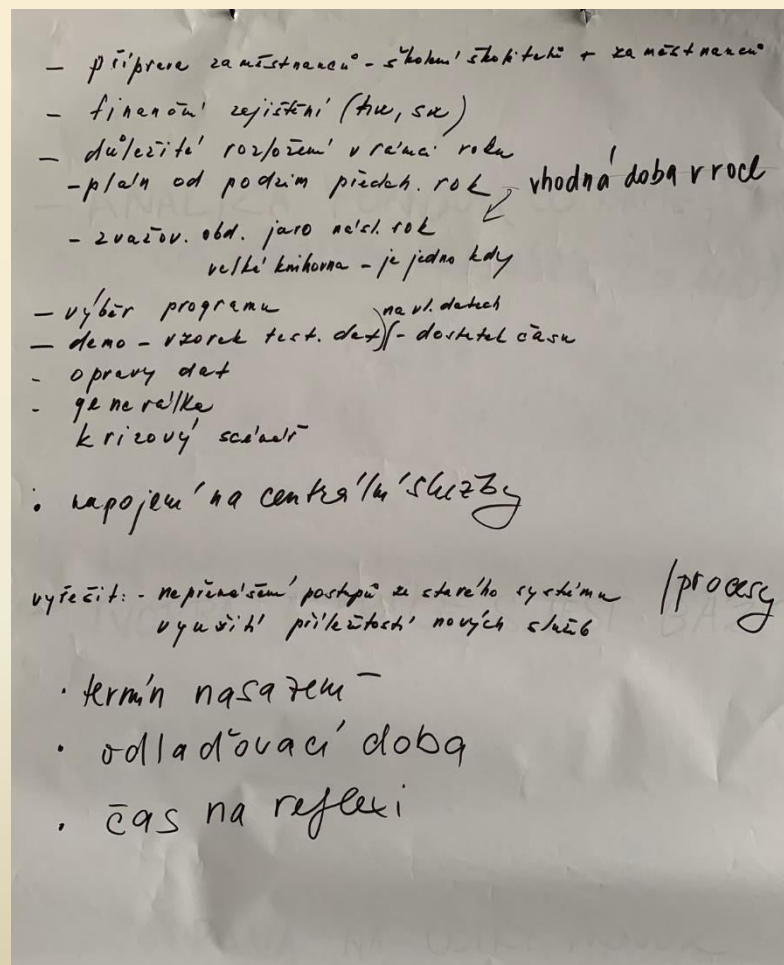 - příprava zaměstnanců - školení školitelů + zaměstnanců
- finanční zajištění (hw, sw)
- důležité rozložení v rámci roku
- plán od podzim předch. rok
vhodná doba v roce
- zvažov. obd. jaro násl. rok
velká knihovna - je jedno kdy
- výběr programu
- demo - vzorek test. dat) - dostatek času
na vl. datech
- opravy dat
- generálka
krizový scénář
• napojení na centrální služby
vyřešit: - nepřenášení postupů ze starého systému /procesy
využití příležitostí nových služeb
• termín nasazení
• odlaďovací doba
• čas na reflexi